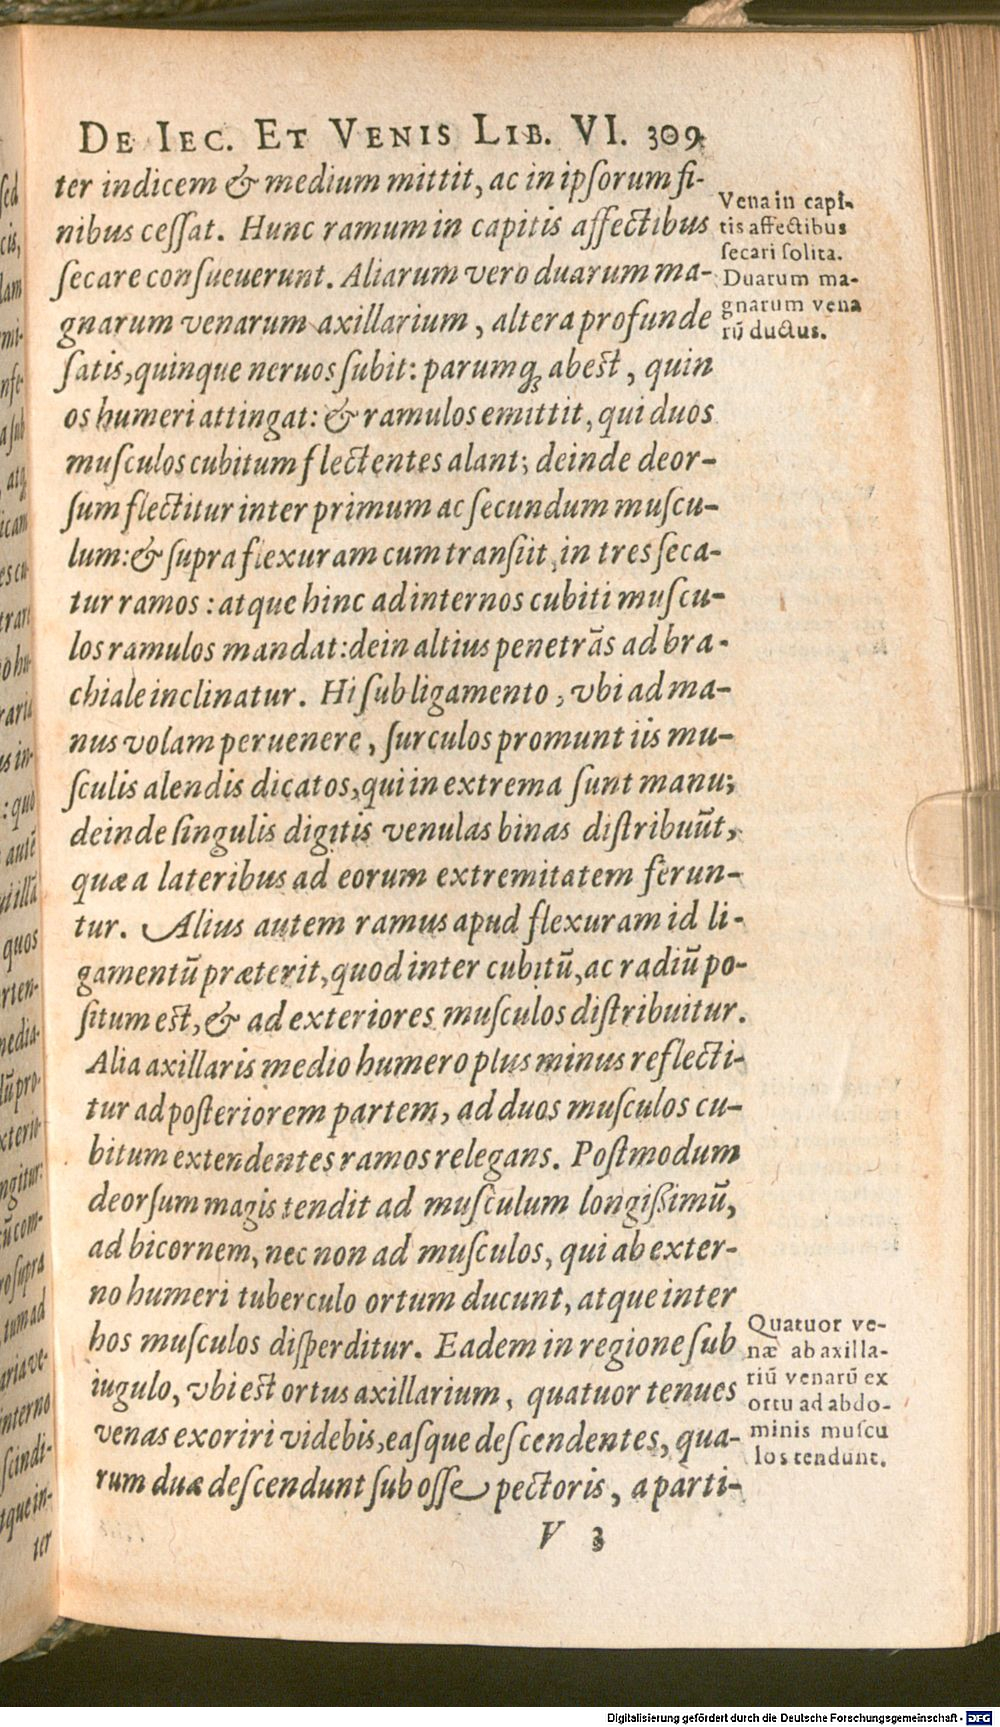 DE IEC. ET VENIS LIB. VI. 309
ter indicem & medium mittit, ac in ipſorum fi-
nibus ceſſat. Hunc ramum in capitis affectibus
ſecare conſueuerunt. Aliarum vero duarum ma-
gnarum venarum axillarium, altera profunde
ſatis, quinque neruos ſubit: parumq; abest, quin
os humeri attingat: & ramulos emittit, qui duos
muſculos cubitum flectentes alant; deinde deor-
ſum flectitur inter primum ac ſecundum muſcu-
lum: & ſupra flexuram cum tranſiit, in tres ſeca-
tur ramos: atque hinc ad internos cubiti muſcu-
los ramulos mandat: dein altius penetrãs ad bra-
chiale inclinatur. Hi ſub ligamento, vbi ad ma-
nus volam peruenere, ſurculos promunt iis mu-
ſculis alendis dicatos, qui in extrema ſunt manu;
deinde ſingulis digitis venulas binas diſtribuũt,
quæ a lateribus ad eorum extremitatem ferun-
tur. Alius autem ramus apud flexuram id li-
gamentũ præterit, quod inter cubitũ, ac radiũ po-
ſitum est, & ad exteriores muſculos diſtribuitur.
Alia axillaris medio humero plus minus reflecti-
tur ad poſteriorem partem, ad duos muſculos cu-
bitum extendentes ramos relegans. Poſtmodum
deorſum magis tendit ad muſculum longißimũ,
ad bicornem, nec non ad muſculos, qui ab exter-
no humeri tuberculo ortum ducunt, atque inter
hos muſculos diſperditur. Eadem in regione ſub
iugulo, vbi est ortus axillarium, quatuor tenues
venas exoriri videbis, easque deſcendentes, qua-
rum duæ deſcendunt ſub oſſe pectoris, a parti-
V 3
Vena in capi-
tis affectibus
ſecari ſolita.
Duarum ma-
gnarum vena
rũ ductus.
Quatuor ve-
næ ab axilla-
riũ venarũ ex
ortu ad abdo-
minis muſcu
los tendunt.
Digitalisierung gefördert durch die Deutsche Forschungsgemeinschaft - DFG